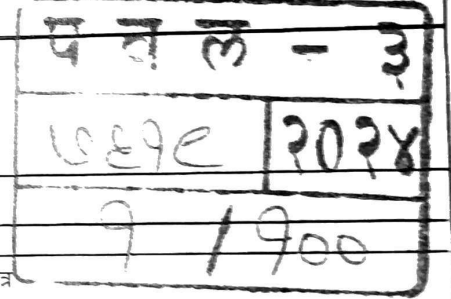 प व ल - ३
७६१९ २०२४
१ / १००